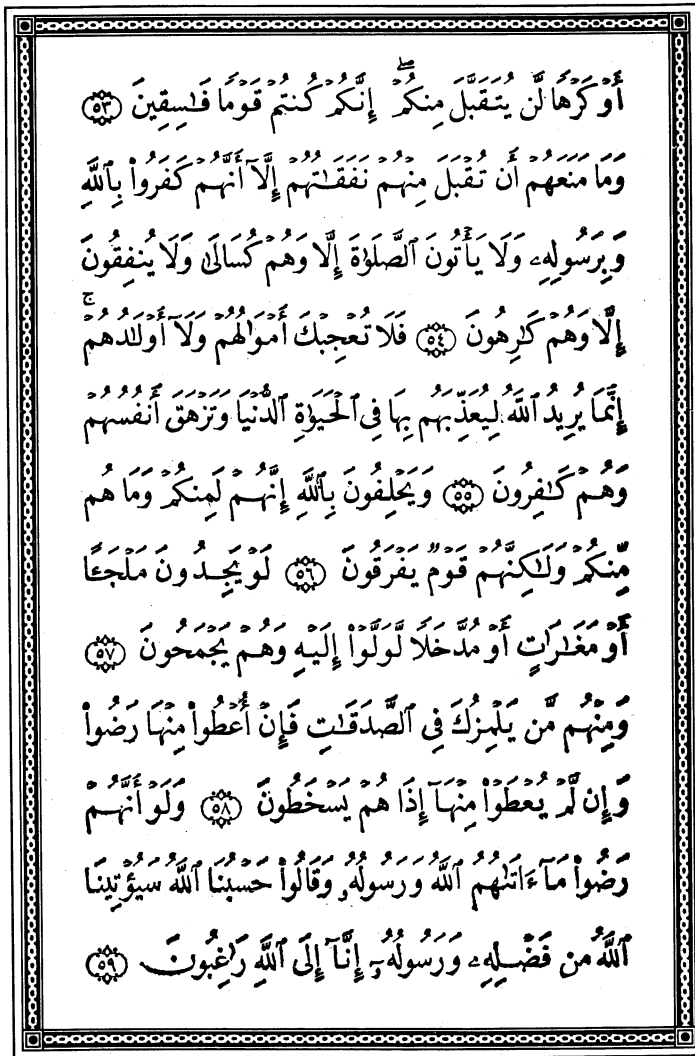 أَوْ كَرْهًا لَّن يُتَقَبَّلَ مِنكُمْ ۖ إِنَّكُمْ كُنتُمْ قَوْمًا فَـٰسِقِينَ ٥٣
وَمَا مَنَعَهُمْ أَن تُقْبَلَ مِنْهُمْ نَفَقَـٰتُهُمْ إِلَّآ أَنَّهُمْ كَفَرُوا۟ بِٱللَّهِ
وَبِرَسُولِهِۦ وَلَا يَأْتُونَ ٱلصَّلَوٰةَ إِلَّا وَهُمْ كُسَالَىٰ وَلَا يُنفِقُونَ
إِلَّا وَهُمْ كَـٰرِهُونَ ٥٤ فَلَا تُعْجِبْكَ أَمْوَٰلُهُمْ وَلَآ أَوْلَـٰدُهُمْ ۚ
إِنَّمَا يُرِيدُ ٱللَّهُ لِيُعَذِّبَهُم بِهَا فِى ٱلْحَيَوٰةِ ٱلدُّنْيَا وَتَزْهَقَ أَنفُسُهُمْ
وَهُمْ كَـٰفِرُونَ ٥٥ وَيَحْلِفُونَ بِٱللَّهِ إِنَّهُمْ لَمِنكُمْ وَمَا هُم
مِّنكُمْ وَلَـٰكِنَّهُمْ قَوْمٌ يَفْرَقُونَ ٥٦ لَوْ يَجِدُونَ مَلْجَـًٔا
أَوْ مَغَـٰرَٰتٍ أَوْ مُدَّخَلًا لَّوَلَّوْا۟ إِلَيْهِ وَهُمْ يَجْمَحُونَ ٥٧
وَمِنْهُم مَّن يَلْمِزُكَ فِى ٱلصَّدَقَـٰتِ فَإِنْ أُعْطُوا۟ مِنْهَا رَضُوا۟
وَإِن لَّمْ يُعْطَوْا۟ مِنْهَآ إِذَا هُمْ يَسْخَطُونَ ٥٨ وَلَوْ أَنَّهُمْ
رَضُوا۟ مَآ ءَاتَىٰهُمُ ٱللَّهُ وَرَسُولُهُۥ وَقَالُوا۟ حَسْبُنَا ٱللَّهُ سَيُؤْتِينَا
ٱللَّهُ مِن فَضْلِهِۦ وَرَسُولُهُۥٓ إِنَّآ إِلَى ٱللَّهِ رَٰغِبُونَ ٥٩